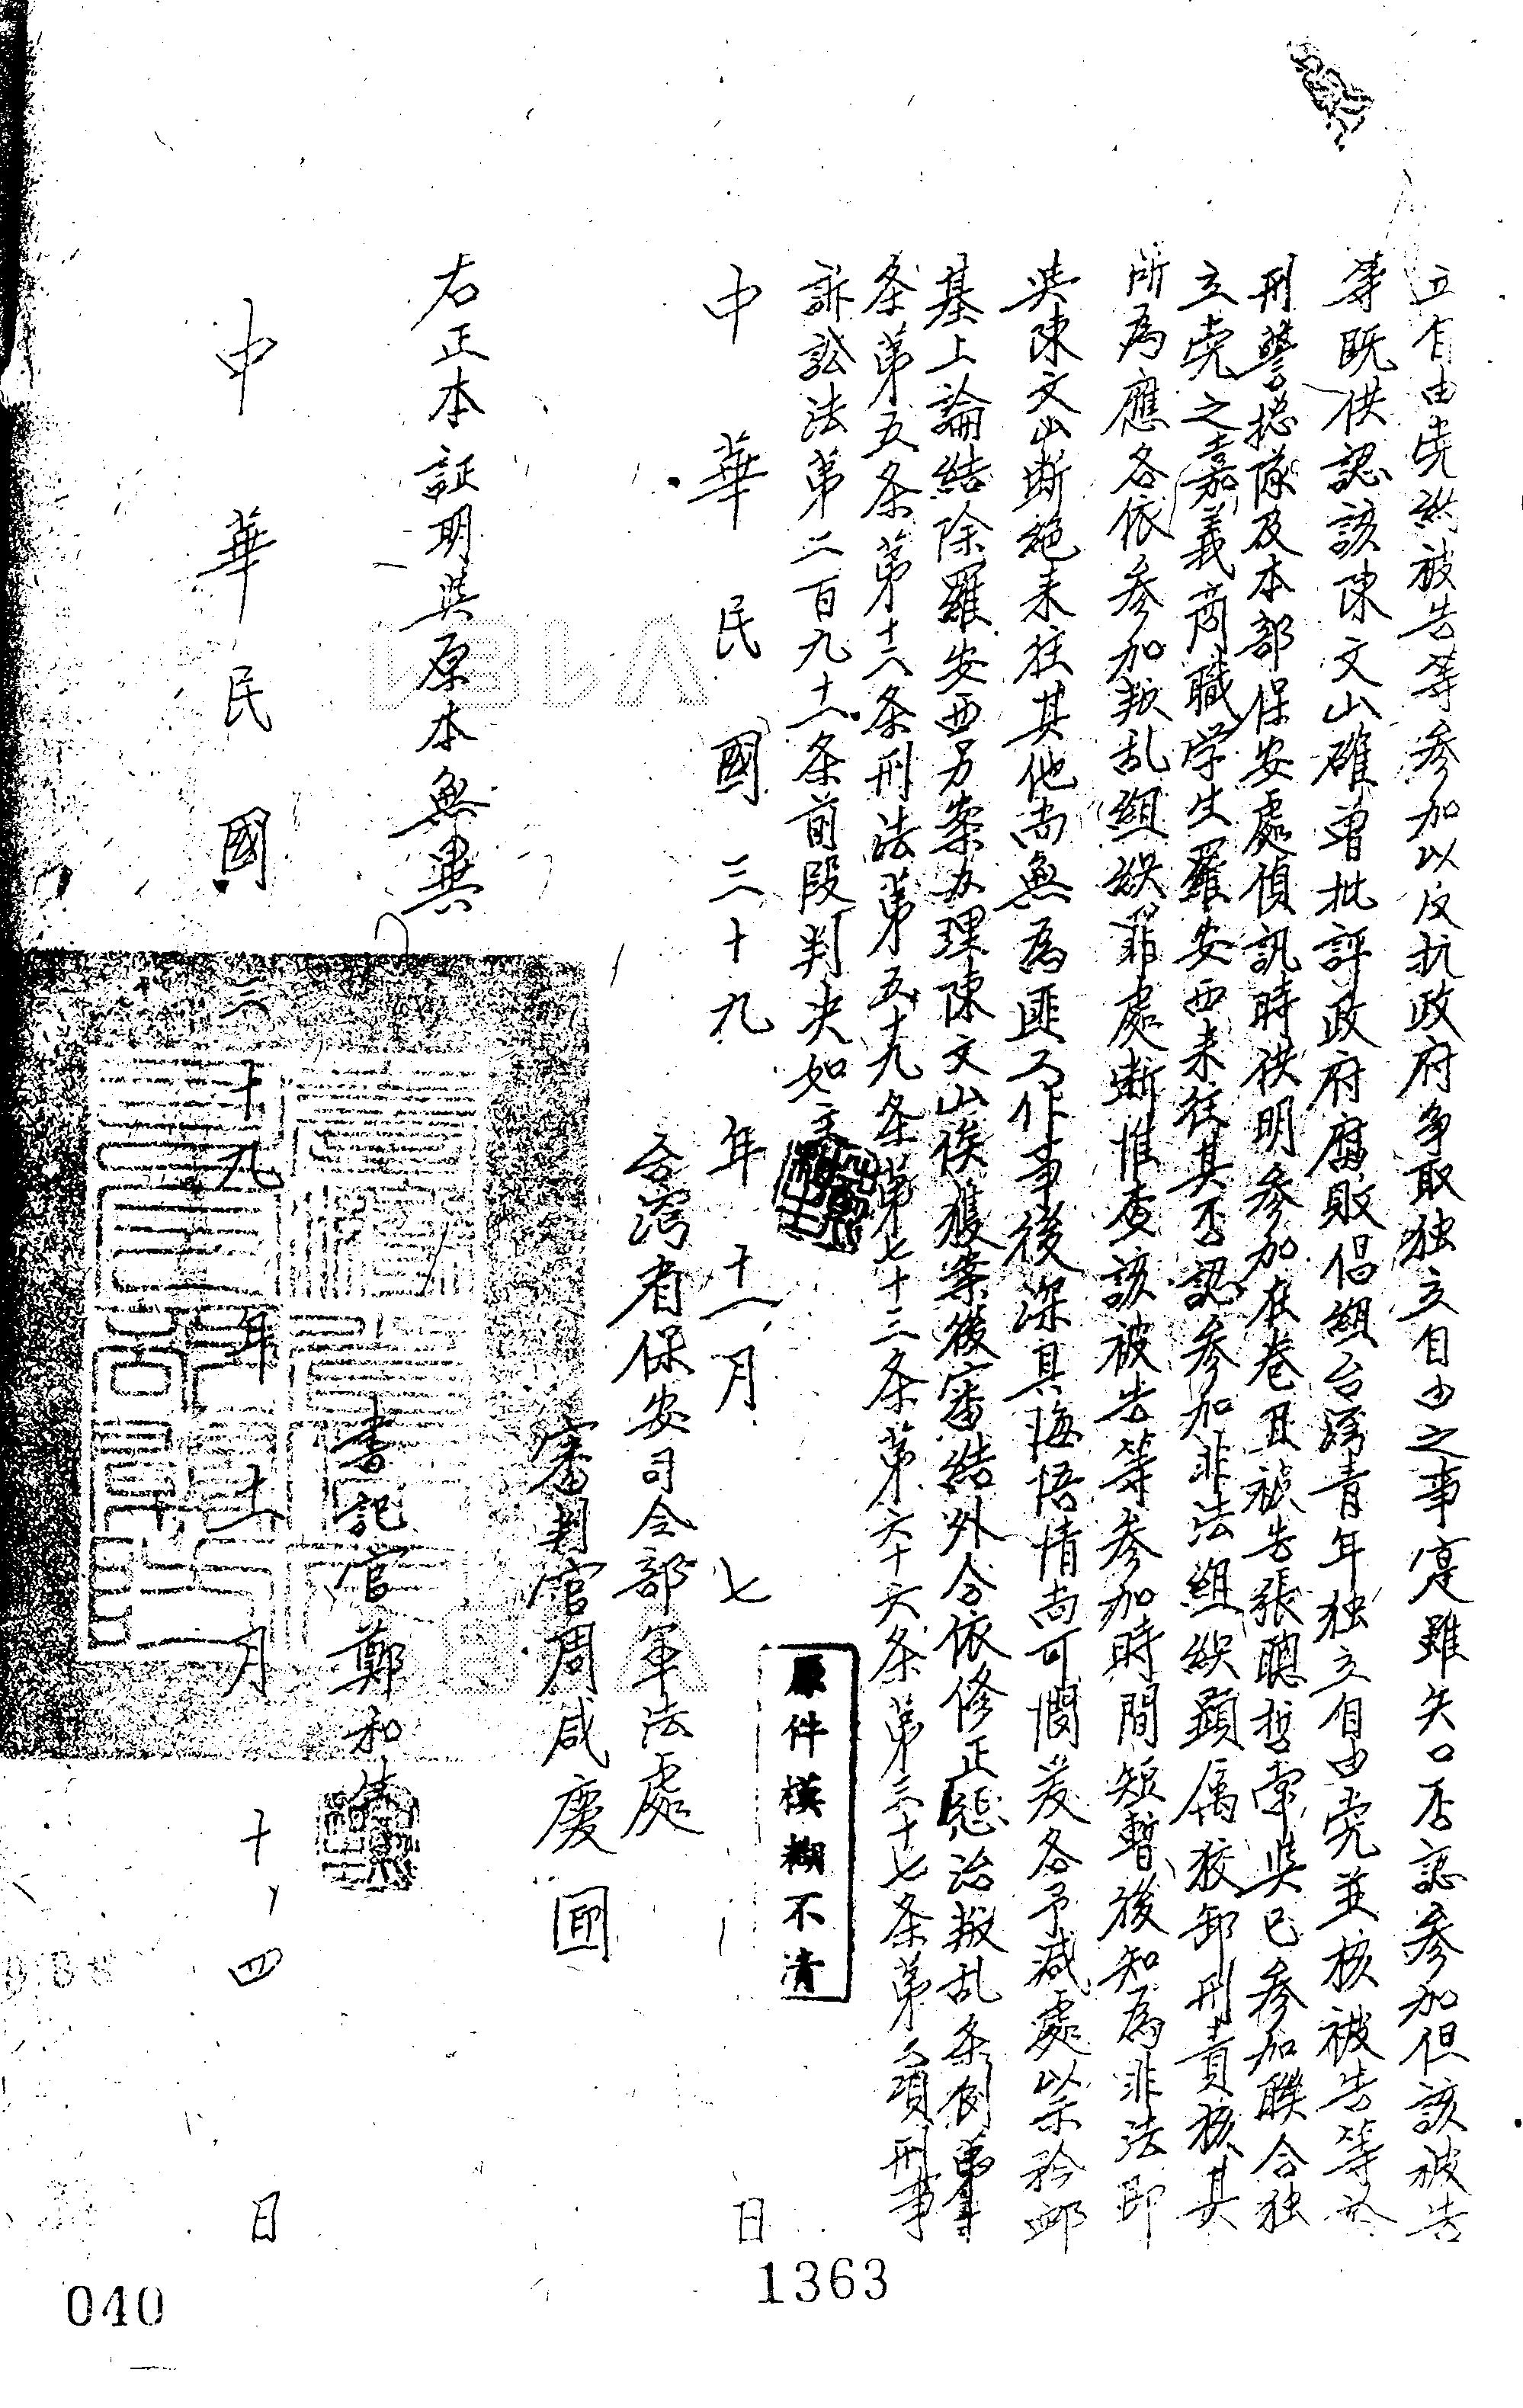 立自由党然被告等参加以反抗政府争取独立自由之事寔雖矢口否認参加但該被告
等既供認該陳文山確曽批評政府腐敗倡組台湾青年独立自由党並核被告等於
刑警総隊及本部保安處偵訊時供明参加在卷且被告張聰哲常與已参加聯合独
立党之嘉義商職学生羅安西来往其否認参加非法組織顕属狡卸刑責核其
所為應各依参加叛乱組織罪處断惟查該被告等参加時間短暫後知為非法即
與陳文山断絶来往其他尚無為匪工作事後深具悔悟情尚可憫爰各予減處以示矜卹
基上論結除羅安西另案办理陳文山俟獲案後審結外合依修正懲治叛乱条例第
条第五条第十二条刑法第五十九条第七十三条第六十六条第三十七条第二項刑事
訴訟法第二百九十一条前段判决如主文
中華民國三十九年十一月七日
台湾省保安司令部軍法處
審判官周咸慶 囬
右正本証明與原本無異
書記官鄭和
中華民國三十九年十一月十四日
原件模糊不清
1363
040